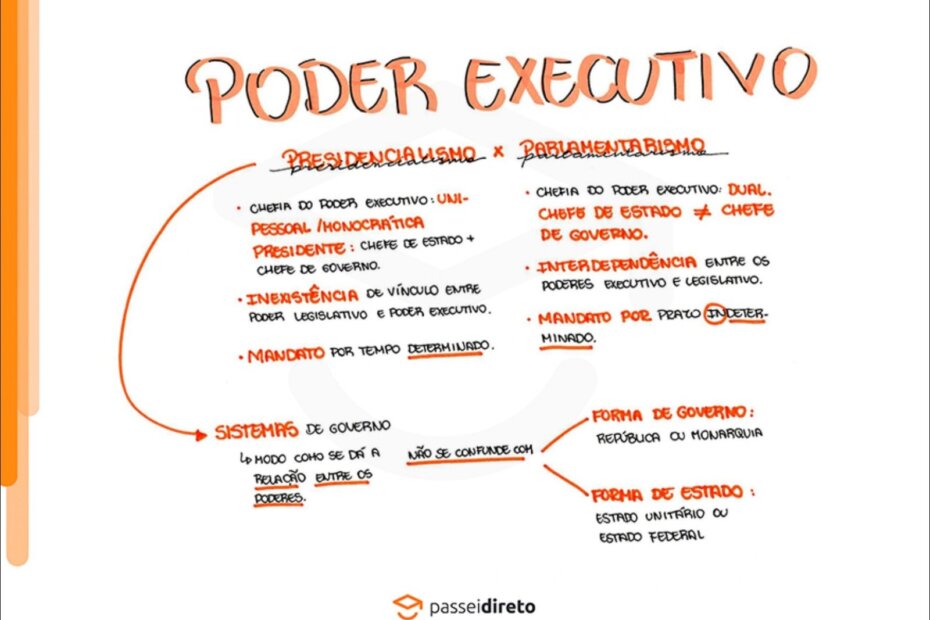 PODER EXECUTIVO
PRESIDENCIALISMO x PARLAMENTARISMO
presidencialismo parlamentarismo
• CHEFIA DO PODER EXECUTIVO: UNI-
PESSOAL/MONOCRÁTICA
PRESIDENTE: CHEFE DE ESTADO +
CHEFE DE GOVERNO.
• INEXISTÊNCIA DE VÍNCULO ENTRE
PODER LEGISLATIVO E PODER EXECUTIVO.
• MANDATO POR TEMPO DETERMINADO.
• CHEFIA DO PODER EXECUTIVO: DUAL.
CHEFE DE ESTADO ≠ CHEFE
DE GOVERNO.
• INTERDEPENDÊNCIA ENTRE OS
PODERES EXECUTIVO E LEGISLATIVO.
• MANDATO POR PRAZO INDETER-
MINADO.
SISTEMAS DE GOVERNO
↳ MODO COMO SE DÁ A
RELAÇÃO ENTRE OS
PODERES.
NÃO SE CONFUNDE COM
FORMA DE GOVERNO:
REPÚBLICA OU MONARQUIA
FORMA DE ESTADO:
ESTADO UNITÁRIO OU
ESTADO FEDERAL
passeidireto